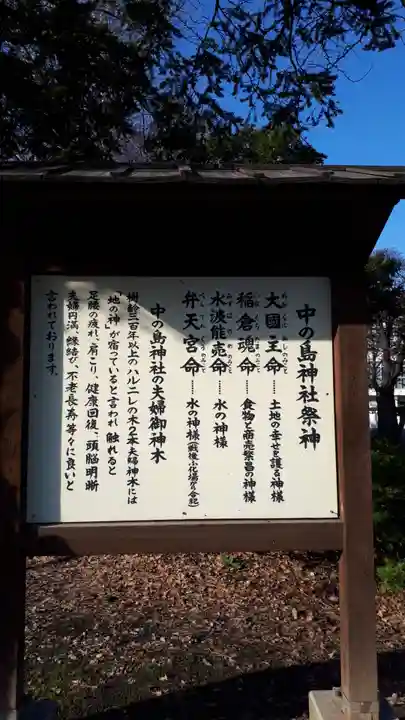 中の島神社祭神
大國主命……土地の幸せを護る神様
稲倉魂命……食物と商売繁昌の神様
水波能売命……水の神様
弁天宮命……水の神様(戦後小化場から合祀)
中の島神社の夫婦御神木
樹齢三百年以上のハルニレの木の本夫婦神木には
「地の神」が宿っていると言われ、触れると
足腰の疲れ、肩こり、健康回復、頭脳明晰
夫婦円満、縁結び、不老長寿等々に良いと
言われております。